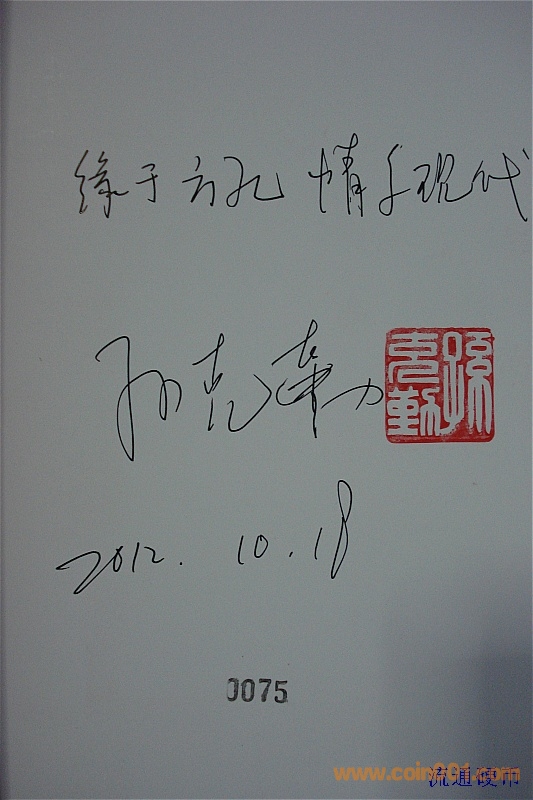 缘于方孔 情系现代
孙克勤
孫克勤
2012.10.18
0075
www.coin001.com
流通硬币